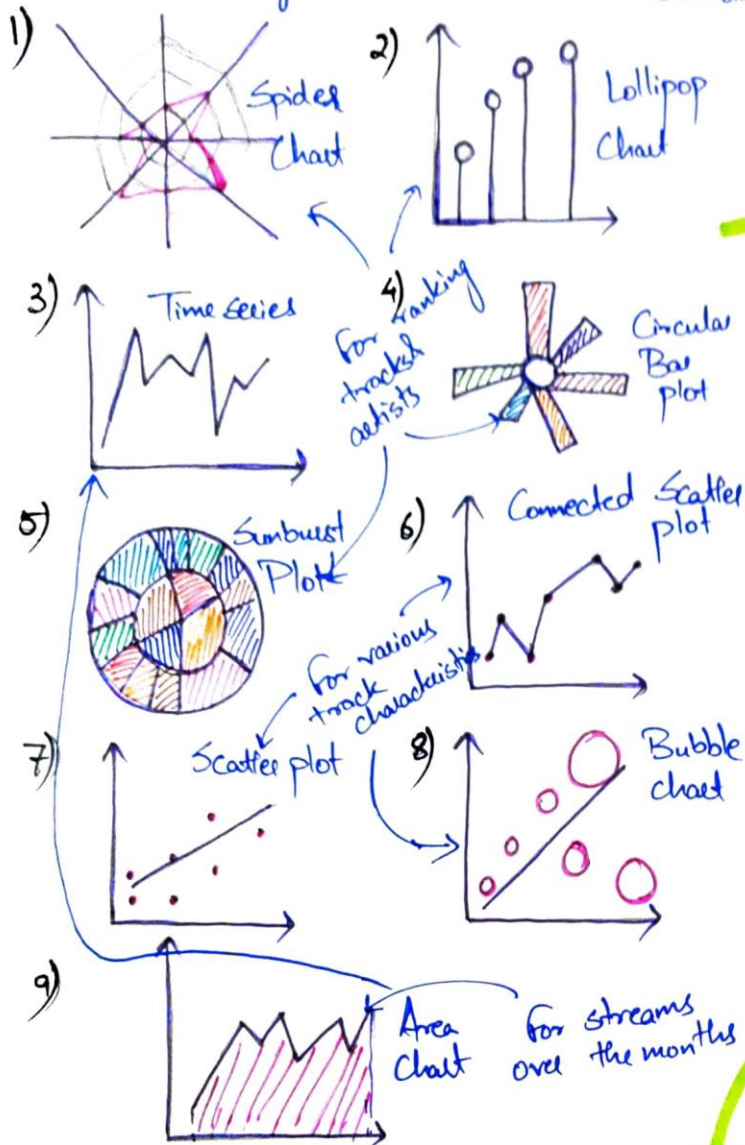 1)
Spider
Chart
2)
Lollipop
Chart
3)
Time series
for ranking
tracks &
artists
4)
Circular
Bar
plot
5)
Sunburst
Plot
6)
Connected Scatter
plot
for various
track
characteristics
7)
Scatter plot
8)
Bubble
chart
9)
Area
Chart
for streams
over the months